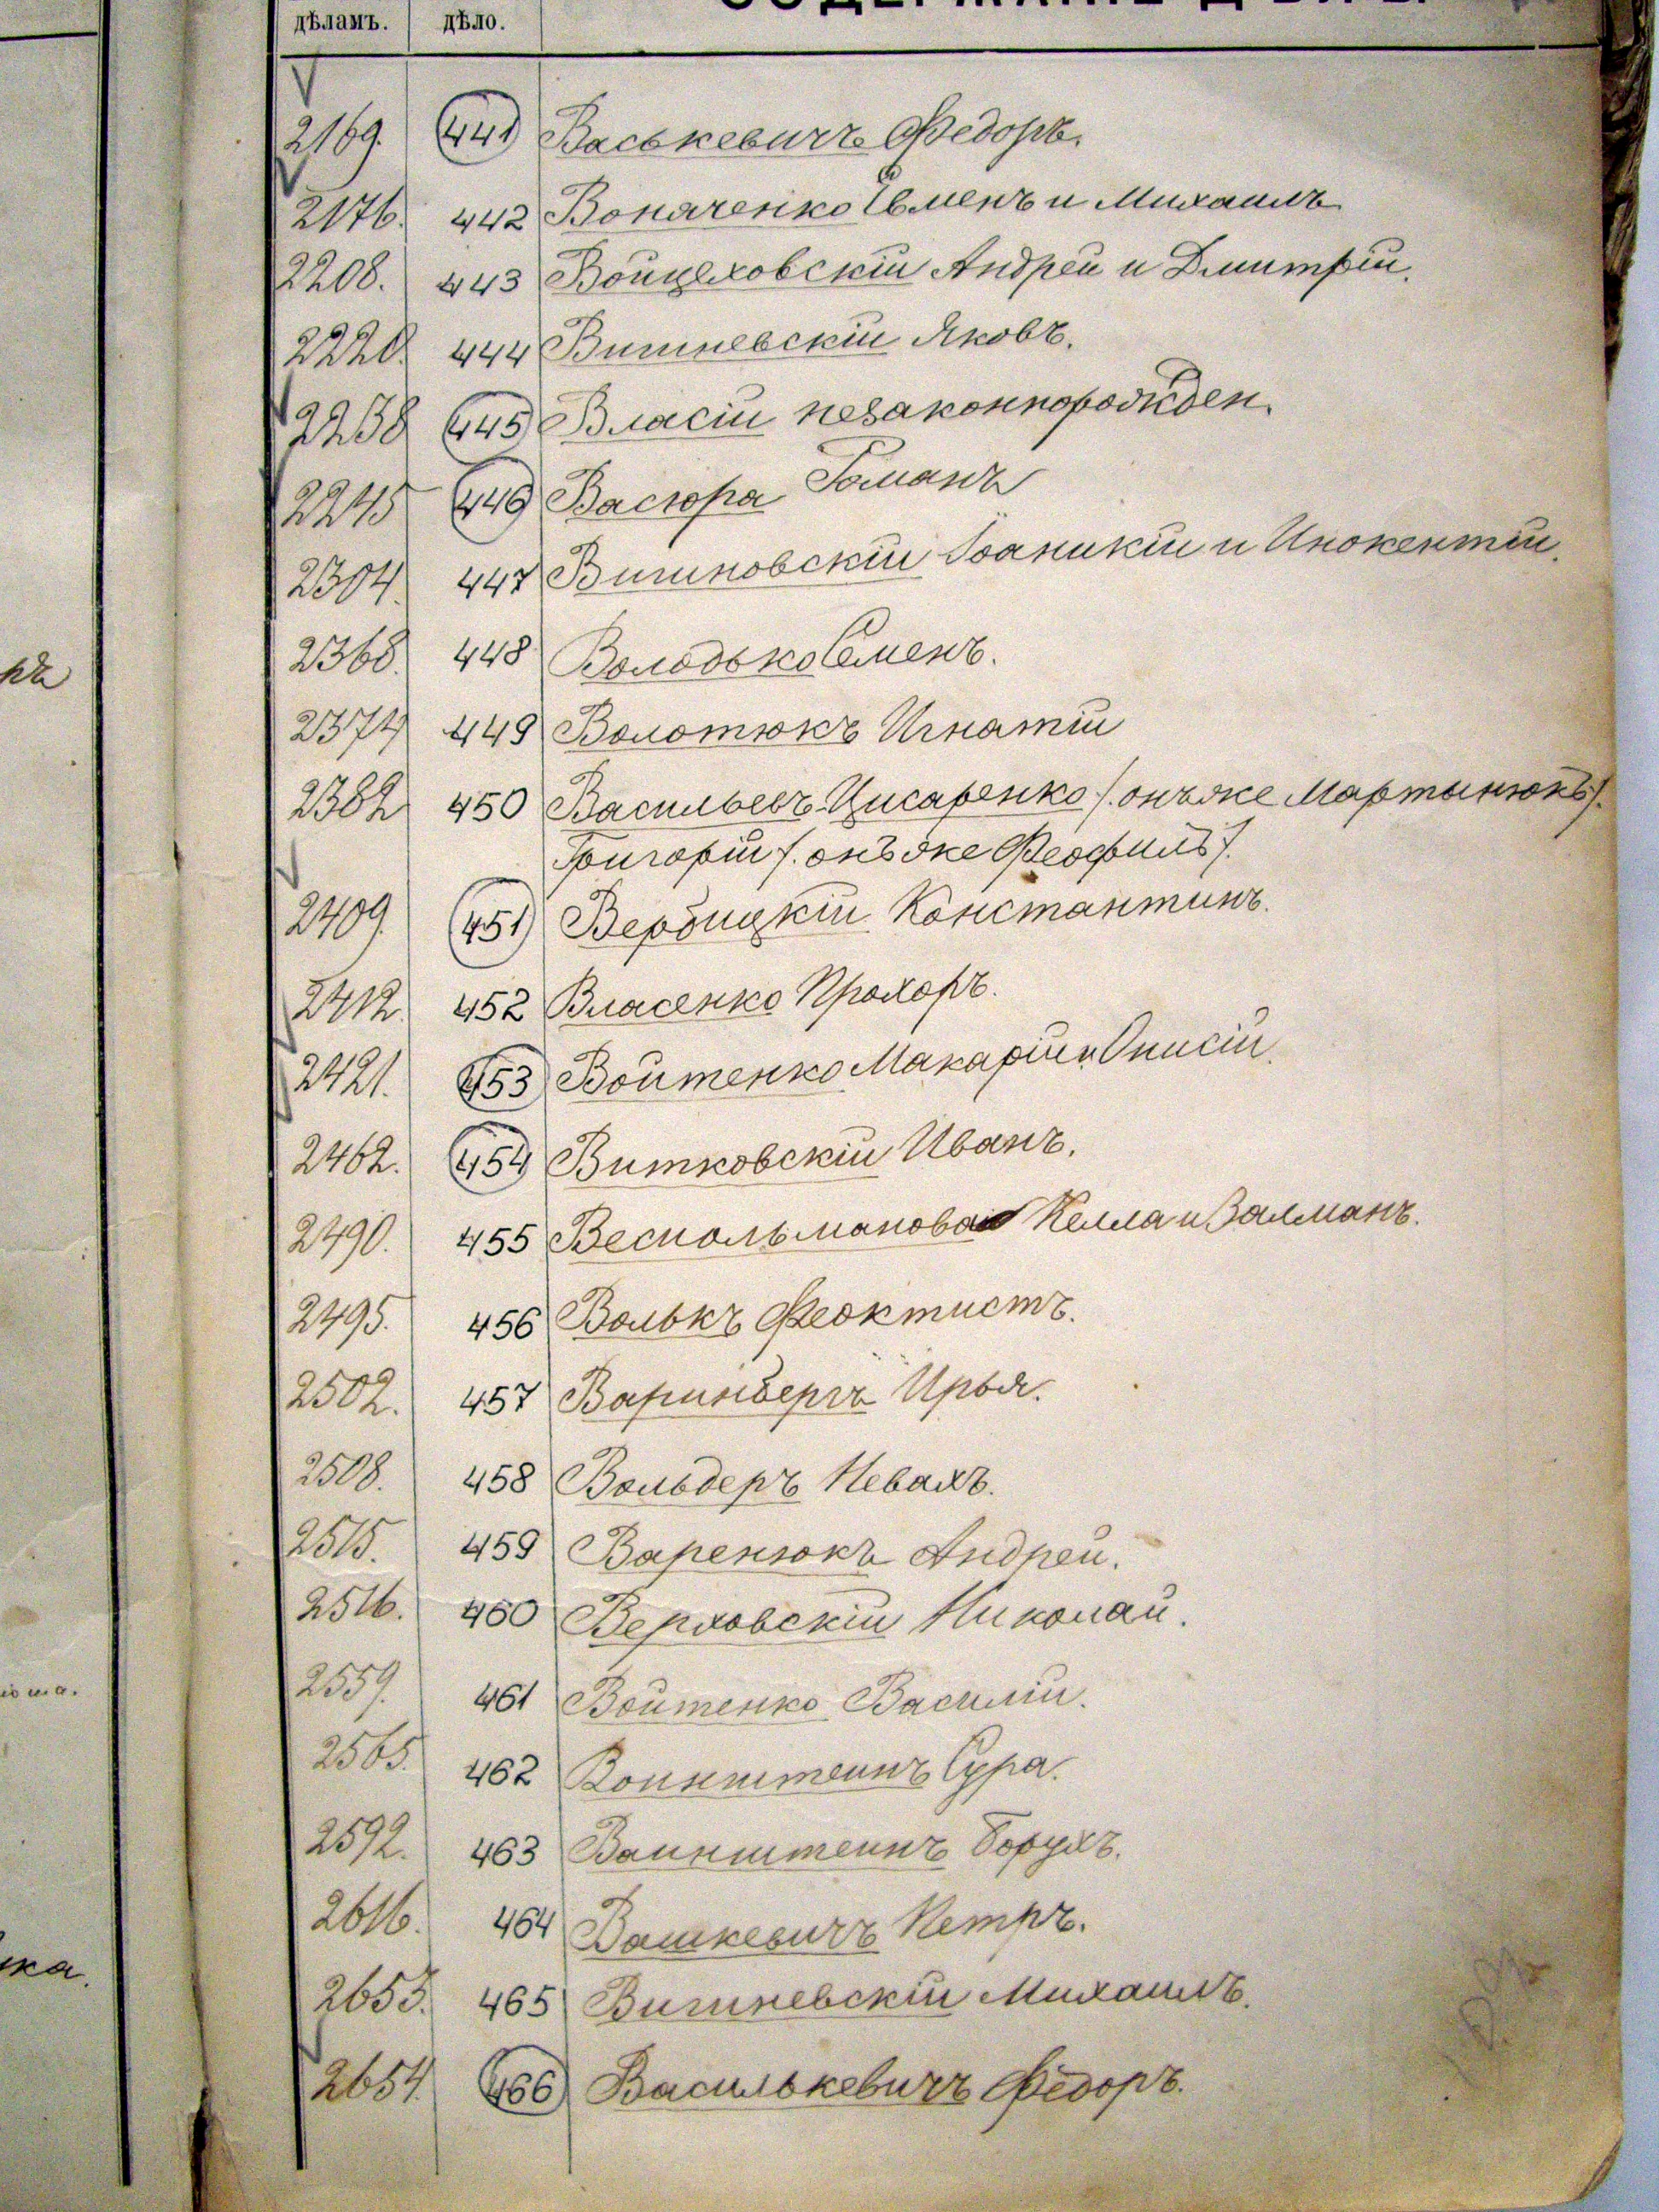 дѣламъ. дѣло. СОДЕРЖАНІЕ ДѢЛЪ
2169. 441 Васькевичъ Федоръ.
2176. 442 Воначенко Семенъ и Михаилъ
2208. 443 Войцеховскій Андрей и Дмитрій.
2220. 444 Вишневскій Яковъ.
2238 445 Власій незаконнорожден.
2245 446 Васюра Романъ
2304. 447 Вишновскій Іоаникій и Инокентій.
2368. 448 Володько Семенъ.
2374 449 Волотюкъ Игнатій
2382 450 Васильевъ-Цисаренко /. онъ же Мартынюкъ /.
Григорій /. онъ же Феофилъ /.
2409. 451 Вербицкій Константинъ.
2412. 452 Власенко Прохоръ.
2421. 453 Войтенко Макарій и Онисій.
2462. 454 Витковскій Иванъ.
2490. 455 Веспольманова Келла и Залманъ.
2495. 456 Волькъ Феоктистъ.
2502. 457 Варинбергъ Ирья.
2508. 458 Вольдеръ Невахъ.
2515. 459 Варенюкъ Андрей.
2516. 460 Верховскій Николай.
2559. 461 Войтенко Василій.
2565. 462 Воинштейнъ Сура.
2592. 463 Ваинштейнъ Борухъ.
2616. 464 Вашкевичъ Петръ.
2653. 465 Вишневскій Михаилъ.
2654. 466 Василькевичъ Федоръ.